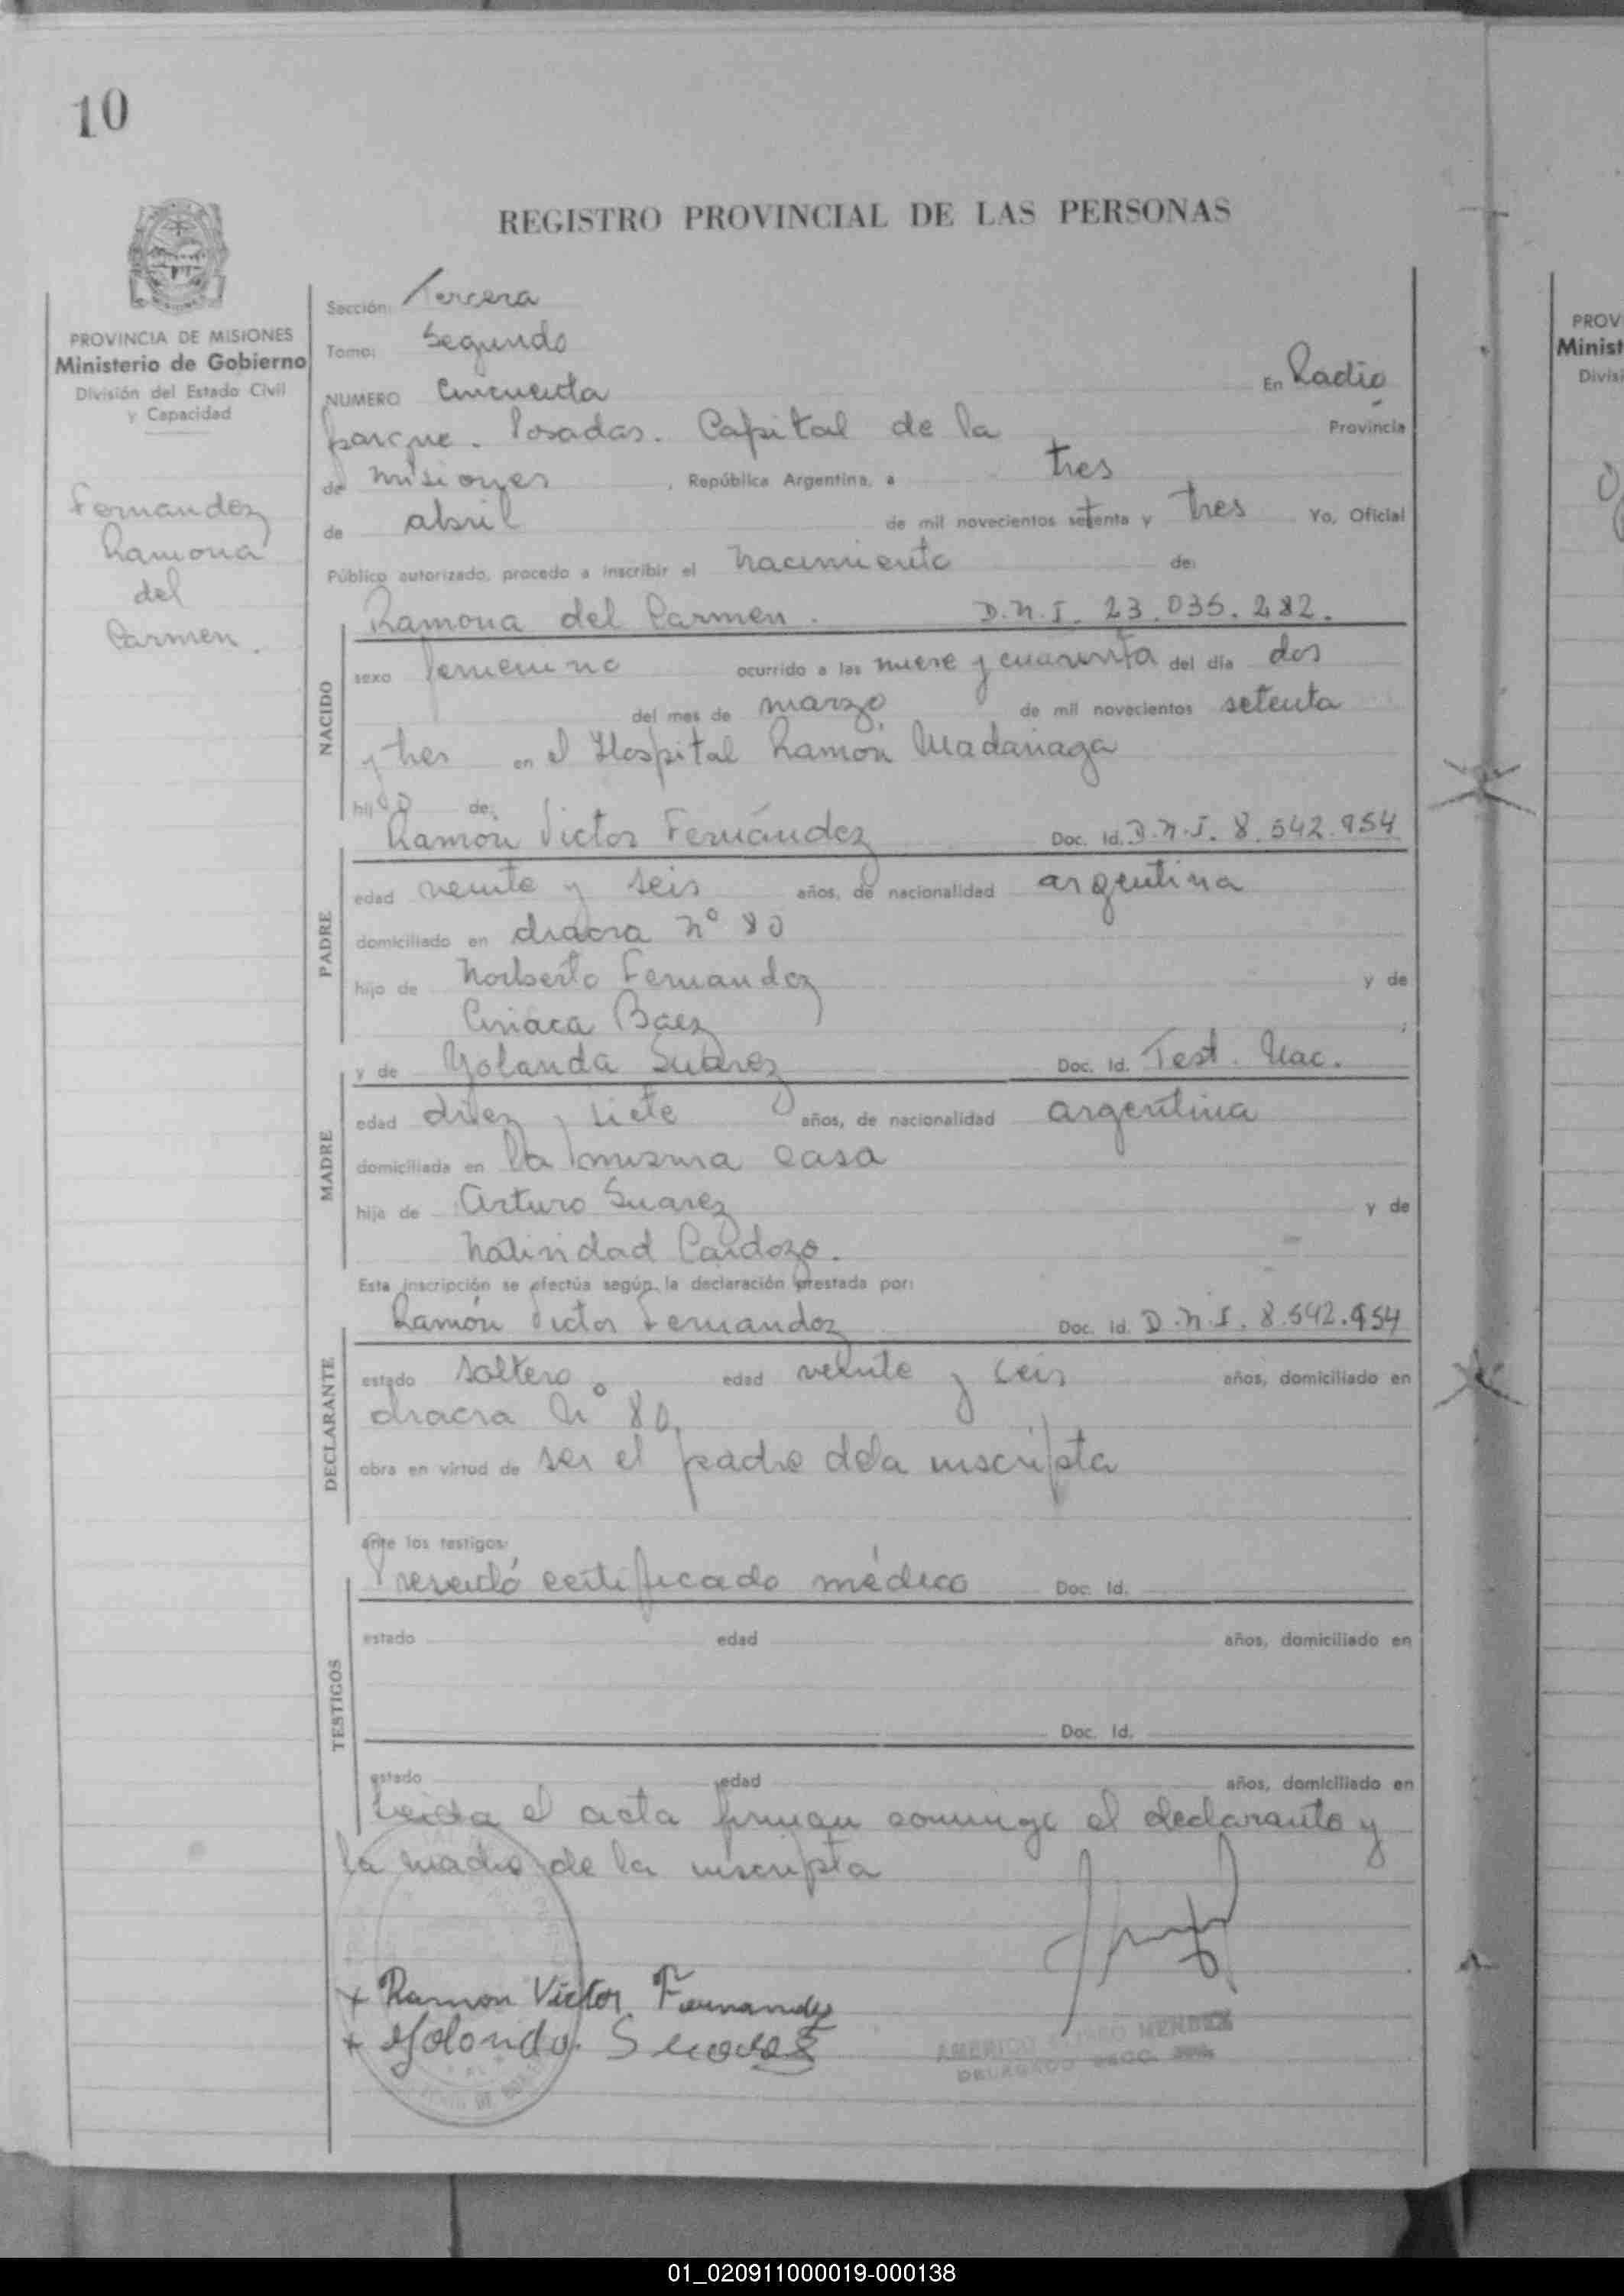 10
REGISTRO PROVINCIAL DE LAS PERSONAS
PROVINCIA DE MISIONES
Ministerio de Gobierno
División del Estado Civil
y Capacidad
Fernandez
Ramona
del
Carmen.
Sección: Tercera
Tomo: Segundo
NUMERO Cincuenta En Radio
parque. Posadas. Capital de la Provincia
de Misiones, República Argentina, a tres
de abril de mil novecientos setenta y tres Yo, Oficial
Público autorizado, procedo a inscribir el nacimiento de:
Ramona del Carmen. D.N.I. 23.035.282.
NACIDO
sexo femenino ocurrido a las nueve y cuarenta del día dos
del mes de marzo de mil novecientos setenta
y tres en el Hospital Ramón Madariaga
hija de:
Ramón Victor Fernández Doc. Id. D.N.I. 8.542.954
PADRE
edad veinte y seis años, de nacionalidad argentina
domiciliado en chacra nº 80
hijo de Norberto Fernandez y de
Ciriaca Baez
y de Yolanda Suarez Doc. Id. Test. Nac.
MADRE
edad diez y siete años, de nacionalidad argentina
domiciliada en la misma casa
hija de Arturo Suarez y de
Natividad Cardozo.
Esta inscripción se efectúa según la declaración prestada por:
Ramón Victor Fernandez Doc. Id. D.N.I. 8.542.954
DECLARANTE
estado soltero edad veinte y seis años, domiciliado en
chacra Nº 80.
obra en virtud de ser el padre dela inscripta
ante los testigos:
Presentó certificado médico Doc. Id.
TESTIGOS
estado edad años, domiciliado en
Doc. Id.
estado edad años, domiciliado en
Leida el acta firman conmigo el declarante y
la madre de la inscripta
+ Ramon Victor Fernandez
+ Yolanda Suarez
AMERICO MENDEZ
DELEGADO SECC.
PROV
Minist
Divisi
01_020911000019-000138